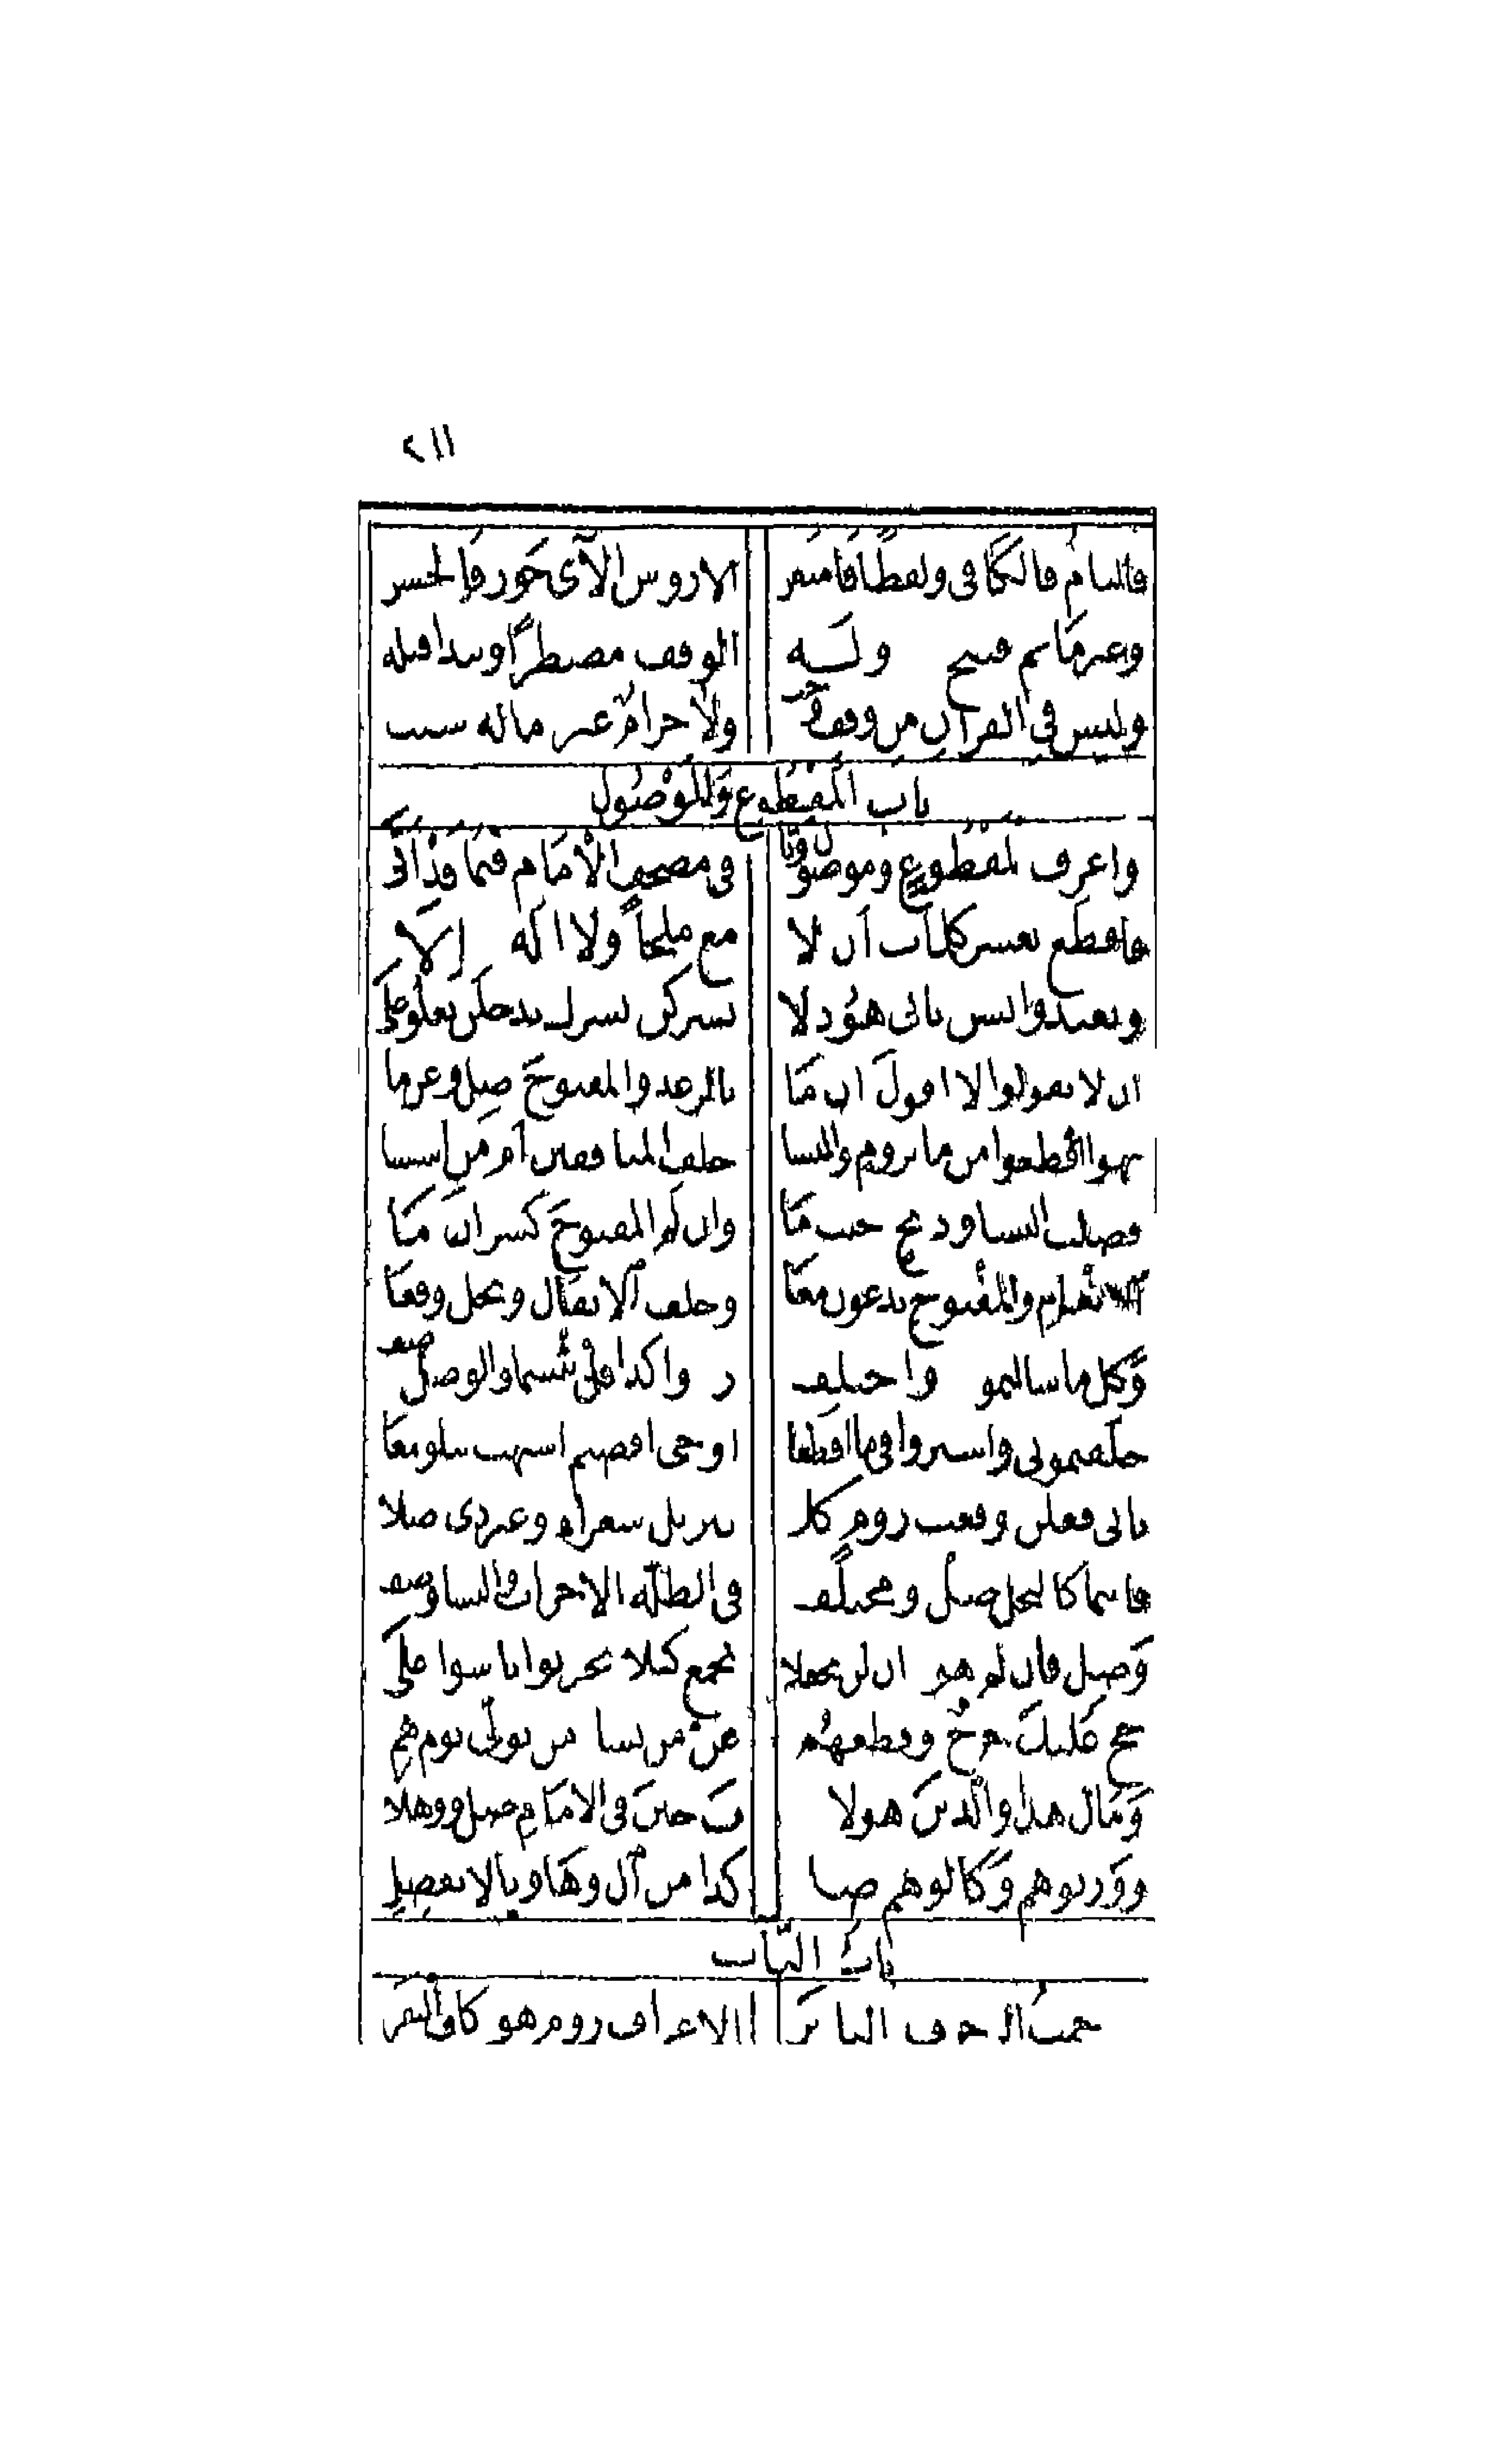 ٢١١
فالتام فالكافي ولفظا فامنعن الا روس الآي جوز فالحسن
وغير ما تم قبيح وله الوقف مضطرا ويبدا قبله
وليس في القرآن من وقف وجب ولا حرام غير ما له سبب
باب المقطوع والموصول
واعرف لمقطوع وموصول وتا في مصحف الامام فيما قد اتى
فاقطع بعشر كلمات ان لا مع ملجا ولا اله إلا
وتعبدوا يسن ثاني هود لا يشركن تشرك يدخلن تعلوا على
ان لا يقولوا لا اقول ان ما بالرعد والمفتوح صل وعن ما
نهوا اقطعوا من ما بروم والنسا خلف المنافقين ام من اسسا
فصلت النسا وذبح حيث ما وان لم المفتوح كسر ان ما
الانعام والمفتوح يدعون معا وخلف الانفال ونحل وقعا
وكل ما سالتمو واختلف ردوا كذا قل بئسما والوصل صف
خلفتموني واشتروا في ما اقطعا اوحي افضتم اشتهت يبلو معا
ثاني فعلن وقعت روم كلا تنزيل شعراء وغير ذي صلا
فاينما كالنحل صل ومختلف في الظلة الاحزاب والنسا وصف
وصل فان لم هود ان لن نجعلا نجمع كيلا تحزنوا تاسوا على
حج عليك حرج وقطعهم عن من يشا من تولى يوم هم
ومال هذا والذين هولا ت حين في الامام صل ووهلا
ووزنوهم وكالوهم صل كذا من ال وها ويا لا تفصل
باب التاات
ورحمت الزخرف بالتا زبره الاعراف روم هود كاف البقره